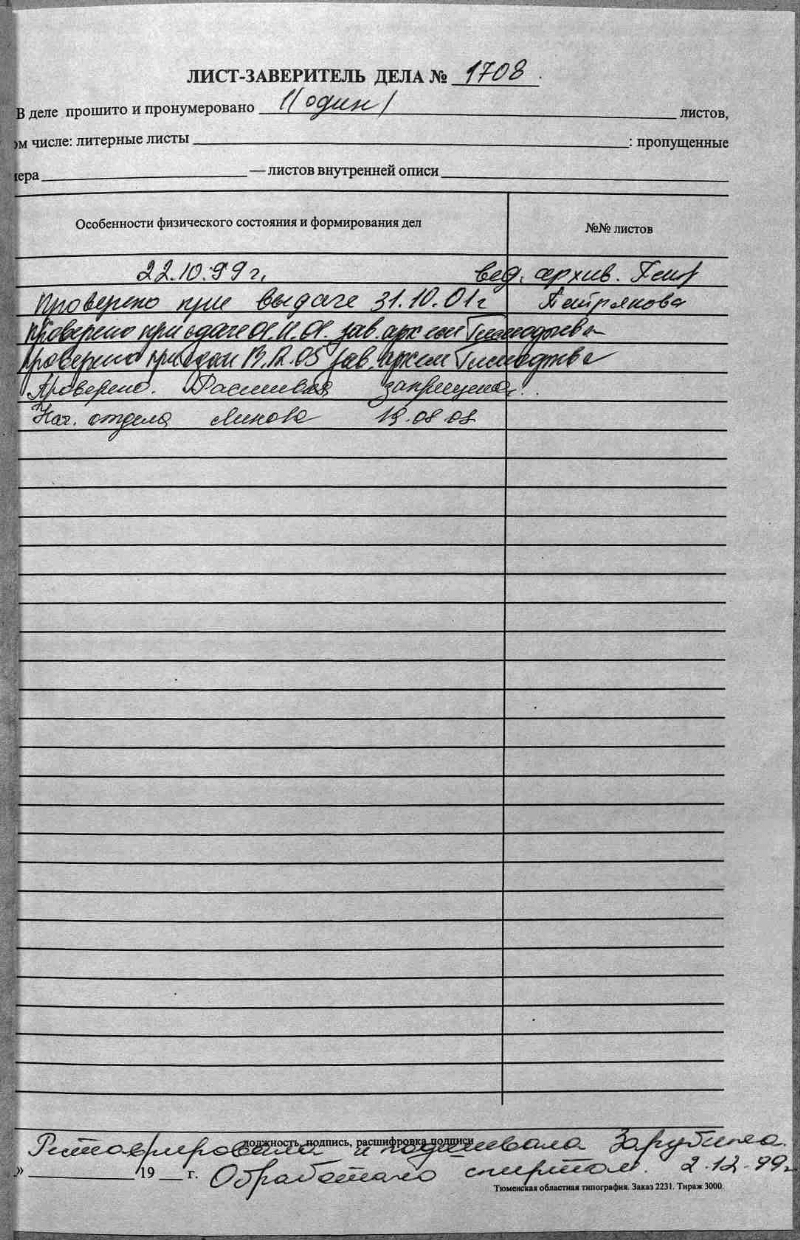 ЛИСТ-ЗАВЕРИТЕЛЬ ДЕЛА № 1708.
В деле прошито и пронумеровано 1 (один) листов,
ом числе: литерные листы : пропущенные
ера — листов внутренней описи
Особенности физического состояния и формирования дел
№№ листов
22.10.99 г. вед. архив.
Проверено при выдаче 31.10.01 г
Проверено при сдаче 01.11.01. зав. арх Тимофеева
Проверено при 13.12.05 зав. арх Тимофеева
Проверено. Расшивка запрещена.
Нач. отдела 19.08.08
должность, подпись, расшифровка подписи
Реставрировала и подшивала Зарубина.
» 19 г. Обработано спиртом. 2.12.99г
Тюменская областная типография. Заказ 2231. Тираж 3000.